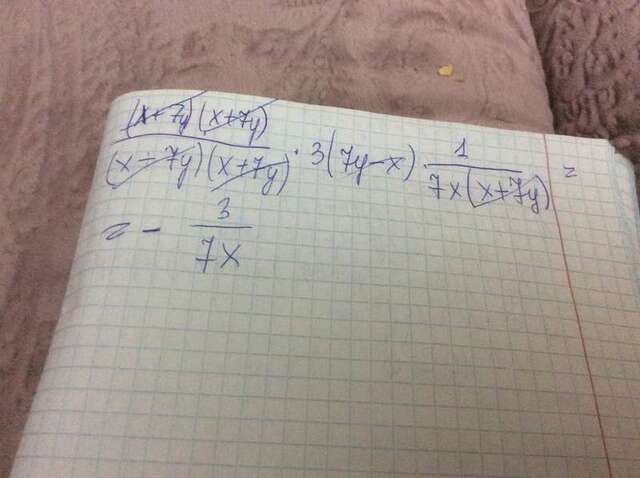 (x+7y)(x+7y)/(x-7y)(x+7y) · 3(7y-x) · 1/7x(x+7y) =
= - 3/7x